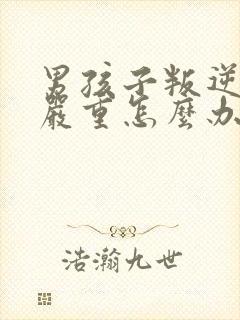 男孩子叛逆
嚴重怎麼办
浩瀚九世